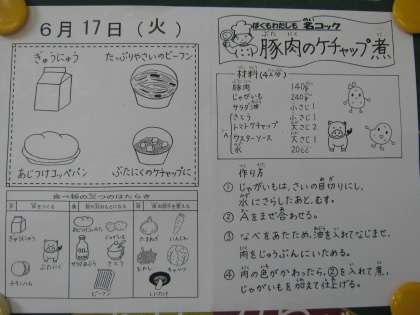 6月17日(火)
ぎゅうにゅう
たっぷりやさいのビーフン
あじつけコッペパン
ぶたにくのケチャップに
食べ物の三つのはたらき
ぎゅうにゅう
ぶたにく
あじつけコッペパン
じゃがいも
サラダあぶら
さとう
ビーフン
たまねぎ
にんじん
もやし
キャベツ
ぼくもわたしも 名コック
豚肉のケチャップ煮
材料(4人分)
豚肉 140g
じゃがいも 240g
サラダ油 小さじ1
A
さとう 小さじ1
トマトケチャップ 大さじ2
ウスターソース 大さじ1
水 20cc
作り方
① じゃがいもは、さいの目切りにし、
水にさらしたあと、むす。
② Aをまぜ合わせる。
③ なべをあたため、油を入れてなじませ、
肉をじゅうぶんにいためる。
④ 肉の色がかわったら、②を入れて煮、
じゃがいもを加えて仕上げる。